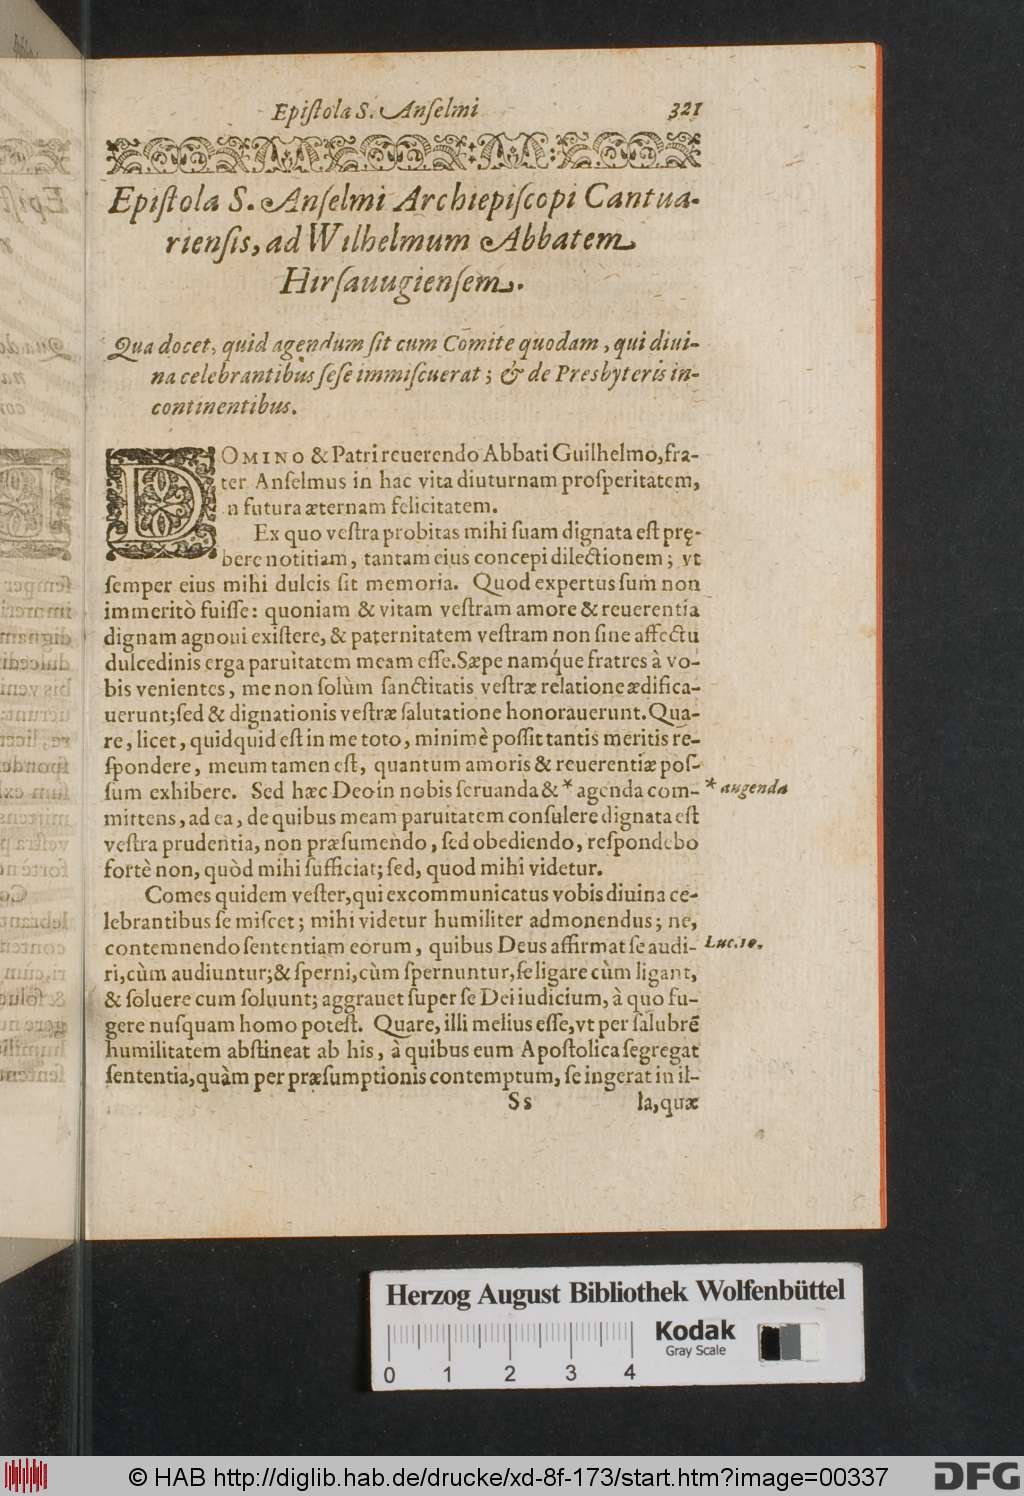 Epiſtola S. Anſelmi 321
Epiſtola S. Anſelmi Archiepiſcopi Cantua-
rienſis, ad Wilhelmum Abbatem
Hirſauugienſem.
Qua docet, quid agendum ſit cum Comite quodam, qui diui-
na celebrantibus ſeſe immiſcuerat; & de Presbyteris in-
continentibus.
DOMINO & Patri reuerendo Abbati Guilhelmo, fra-
ter Anſelmus in hac vita diuturnam proſperitatem,
in futura æternam felicitatem.
Ex quo veſtra probitas mihi ſuam dignata eſt prę-
bere notitiam, tantam eius concepi dilectionem; vt
ſemper eius mihi dulcis ſit memoria. Quod expertus ſum non
immeritò fuiſſe: quoniam & vitam veſtram amore & reuerentia
dignam agnoui exiſtere, & paternitatem veſtram non ſine affectu
dulcedinis erga paruitatem meam eſſe. Sæpe namq́ue fratres à vo-
bis venientes, me non ſolùm ſanctitatis veſtræ relatione ædifica-
uerunt; ſed & dignationis veſtræ ſalutatione honorauerunt. Qua-
re, licet, quidquid eſt in me toto, minimè poſſit tantis meritis re-
ſpondere, meum tamen eſt, quantum amoris & reuerentiæ poſ-
ſum exhibere. Sed hæc Deo in nobis ſeruanda & * agenda com- * augenda
mittens, ad ea, de quibus meam paruitatem conſulere dignata eſt
veſtra prudentia, non præſumendo, ſed obediendo, reſpondebo
fortè non, quòd mihi ſufficiat; ſed, quod mihi videtur.
Comes quidem veſter, qui excommunicatus vobis diuina ce-
lebrantibus ſe miſcet; mihi videtur humiliter admonendus; ne,
contemnendo ſententiam eorum, quibus Deus affirmat ſe audi- Luc. 10.
ri, cùm audiuntur; & ſperni, cùm ſpernuntur, ſe ligare cùm ligant,
& ſoluere cum ſoluunt; aggrauet ſuper ſe Dei iudicium, à quo fu-
gere nuſquam homo poteſt. Quare, illi melius eſſe, vt per ſalubrē
humilitatem abſtineat ab his, à quibus eum Apoſtolica ſegregat
ſententia, quàm per præſumptionis contemptum, ſe ingerat in il-
Ss la, quæ
Herzog August Bibliothek Wolfenbüttel
Kodak
Gray Scale
0 1 2 3 4
© HAB http://diglib.hab.de/drucke/xd-8f-173/start.htm?image=00337
DFG